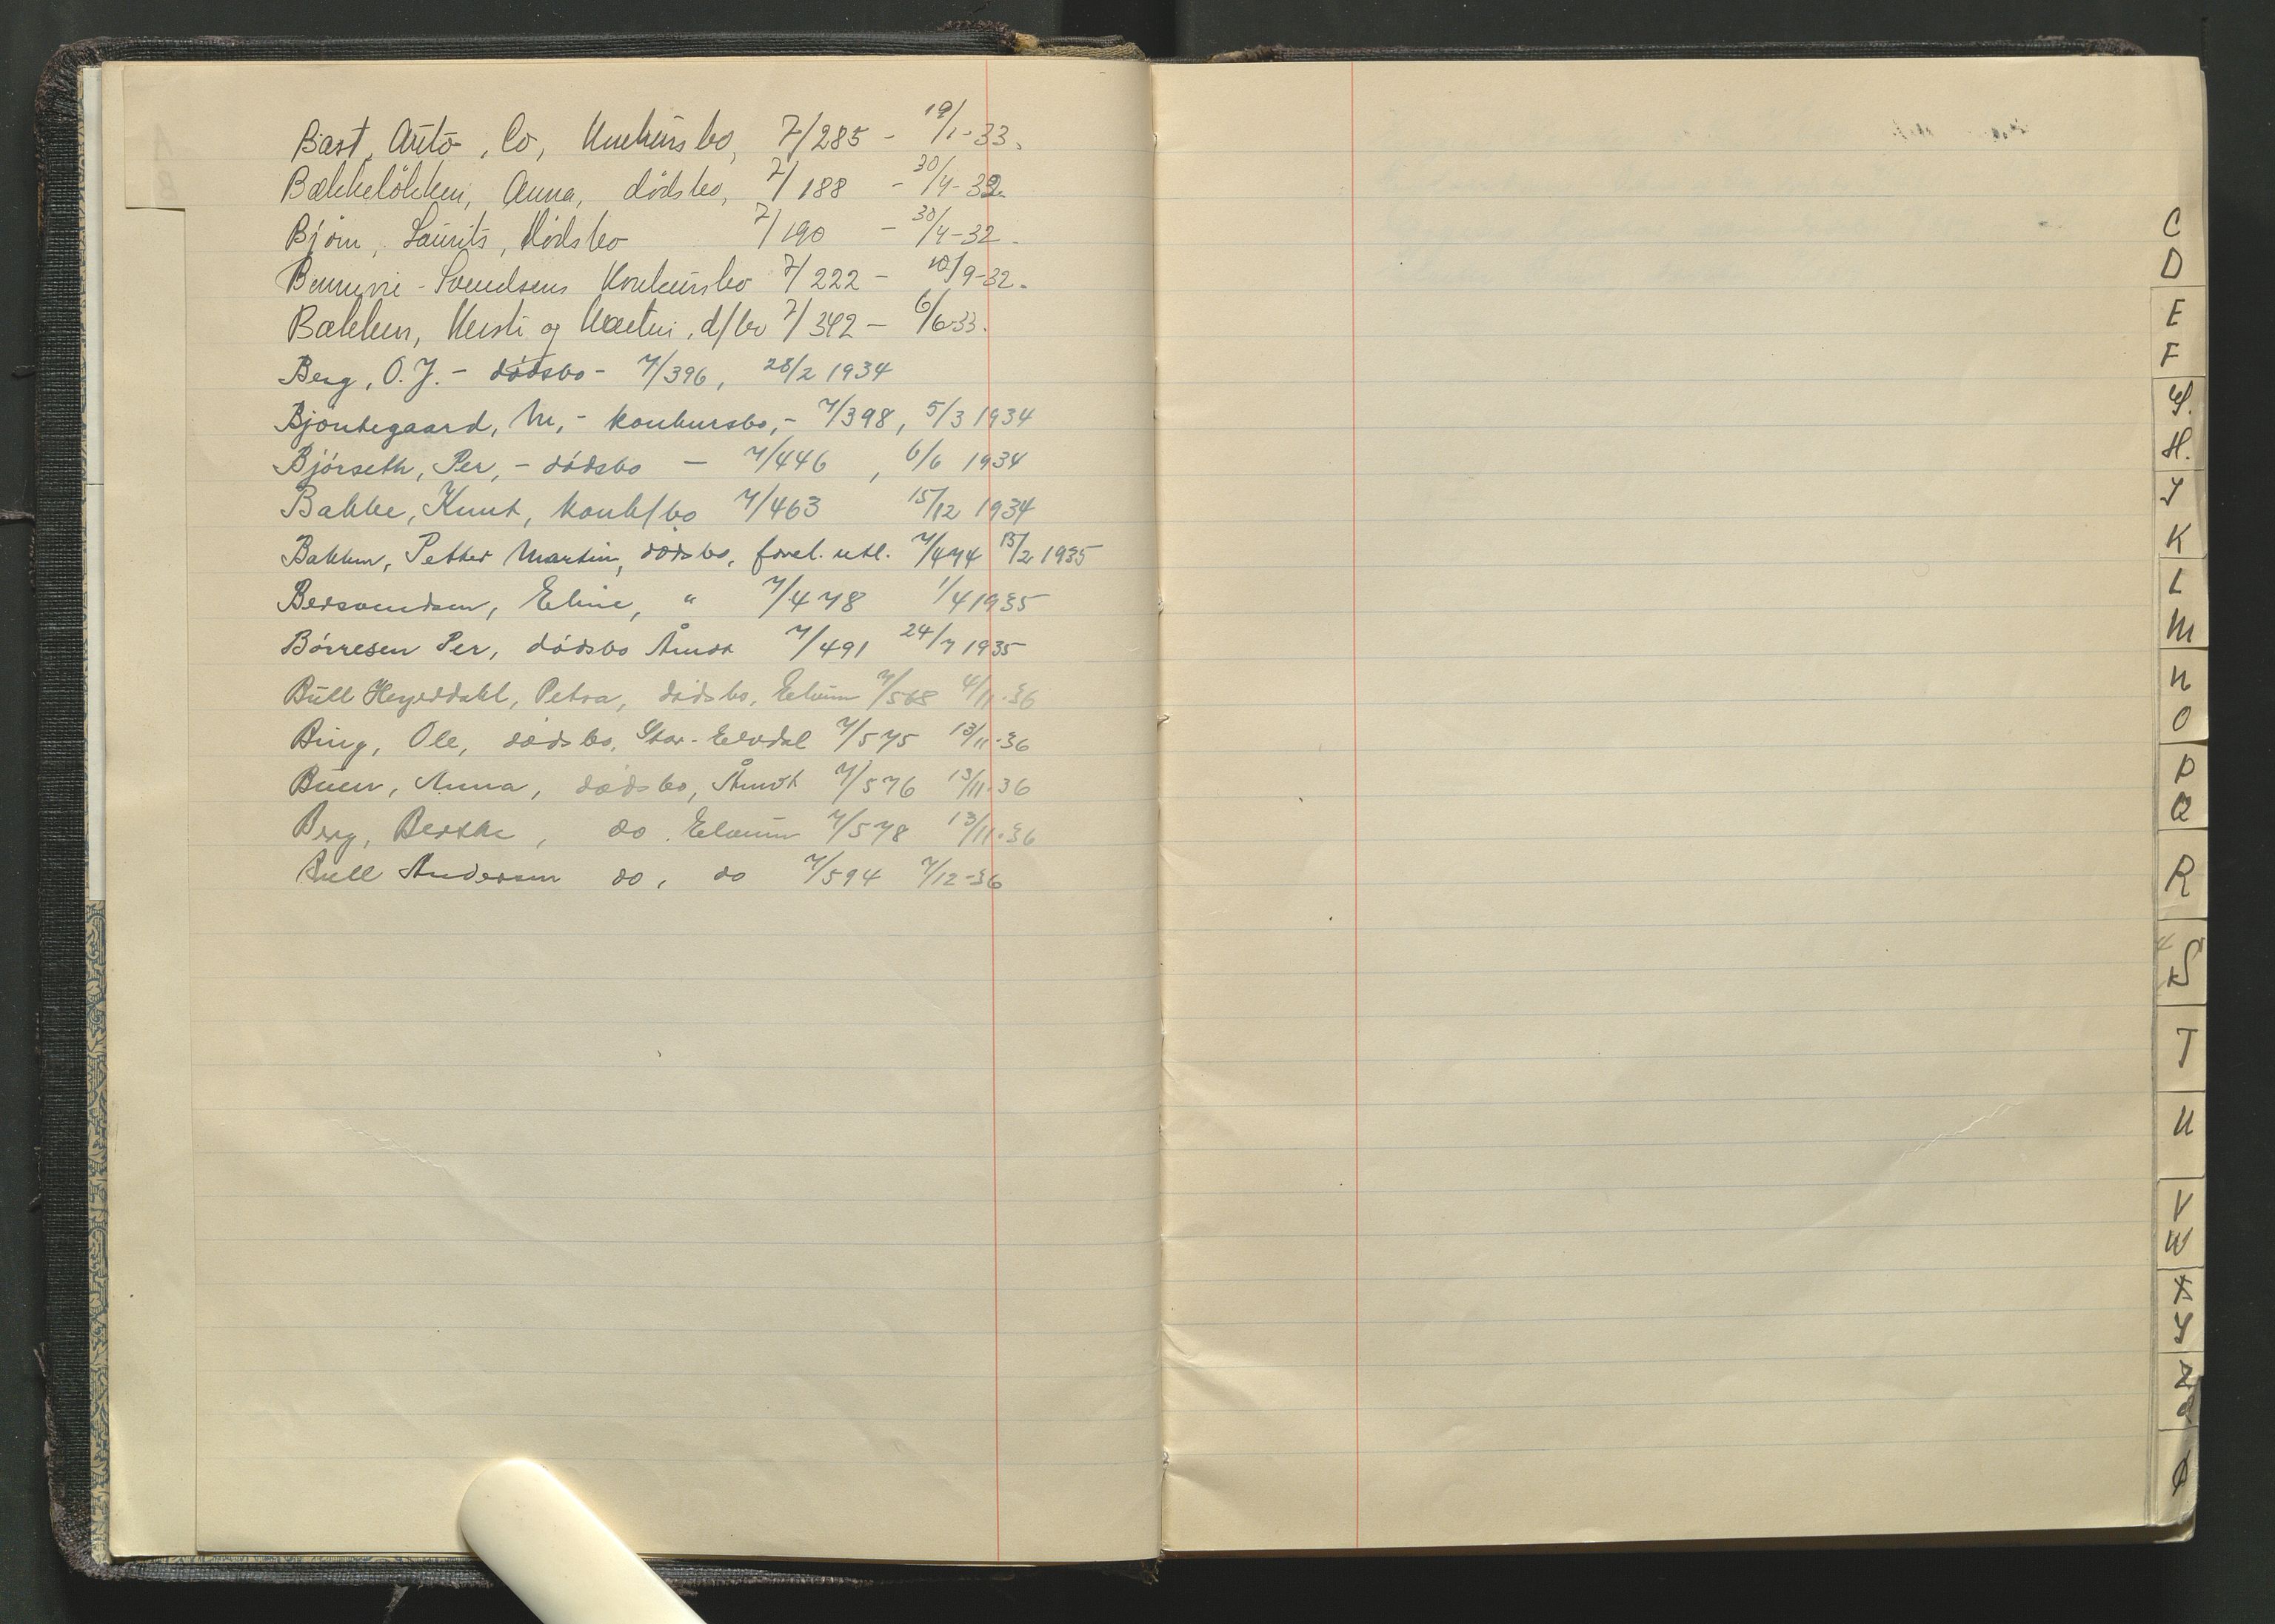 Bast, Auto, Co, Konkursbo, 7/285 - 19/1-33.
Bækkeløkken, Anna, dødsbo, 7/188 - 30/4-32.
Bjørn, Laurits, dødsbo 7/190 - 30/4-32.
Svendsens Konkursbo 7/222 - 10/9-32.
Bækken, Kersti og Martin, d/bo 7/342 - 6/6-33.
Berg, O.J. - dødsbo - 7/396, 28/2 1934
Bjøntegaard, M, - konkursbo, - 7/398, 5/3 1934
Bjørseth, Per, - dødsbo - 7/446, 6/6 1934
Bakke, Knut, konk/bo 7/463 15/12 1934
Bakken, Petter Martin, dødsbo, forel. utl. 7/474 15/2 1935
Bersvendsen, Eline, " 7/478 1/4 1935
Børresen Per, dødsbo Åmot 7/491 24/7 1935
Bull Heyerdahl, Petra, dødsbo, Elvum 7/568 4/11-36
Bing, Ole, dødsbo, Stor-Elvdal 7/575 13/11-36
Buen, Anna, dødsbo, Åmot 7/576 13/11-36
Berg, Berthe, do Elverum 7/578 13/11-36
Bull Andersen do, do 7/594 7/12-36
C
D
E
F
G.
H.
I
K
L
M
N
O
P
Q
R
S
T
U
V
W
X
Y
Z
Ø